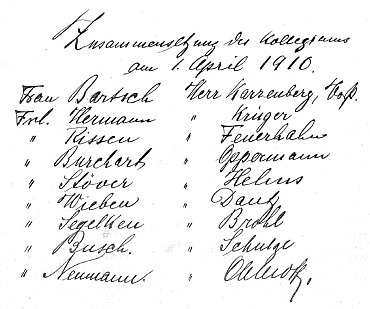 Zusammensetzung des Kollegiums
am 1. April 1910.
Frau Bartsch Herr Karzenberg, Voß.
Frl. Hermann " Krüger
" Rissen " Feuerhahn
" Burchart " Oppermann
" Stöver " Helms
" Wieben " Dantz
" Segelken " Brohl
" Busch. " Schulze
" Neumann. "